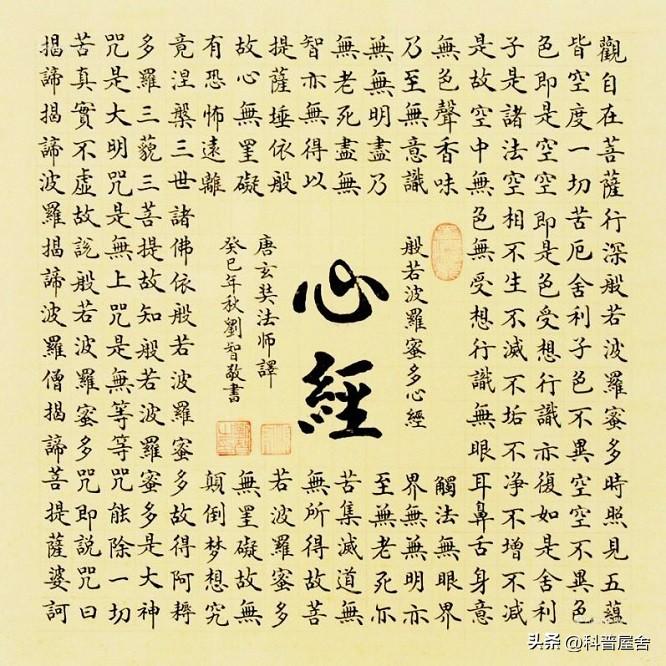 觀自在菩薩行深般若波羅蜜多時照見五蘊
皆空度一切苦厄舍利子色不異空空不異色
色即是空空即是色受想行識亦復如是舍利
子是諸法空相不生不滅不垢不净不增不減
是故空中無色無受想行識無眼耳鼻舌身意
無色聲香味
觸法無眼界
乃至無意識
界無無明亦
無無明盡乃
至無老死亦
無老死盡無
苦集滅道無
智亦無得以
無所得故菩
提薩埵依般
若波羅蜜多
故心無罣礙
無罣礙故無
有恐怖遠離
顛倒梦想究
竟涅槃三世諸佛依般若波羅蜜多故得阿耨
多羅三藐三菩提故知般若波羅蜜多是大神
咒是大明咒是無上咒是無等等咒能除一切
苦真實不虛故說般若波羅蜜多咒即說咒曰
揭諦揭諦波羅揭諦波羅僧揭諦菩提薩婆訶
般若波羅蜜多心經
心經
唐玄奘法师譯
癸巳年秋劉智敬書
头条 @科普屋舍